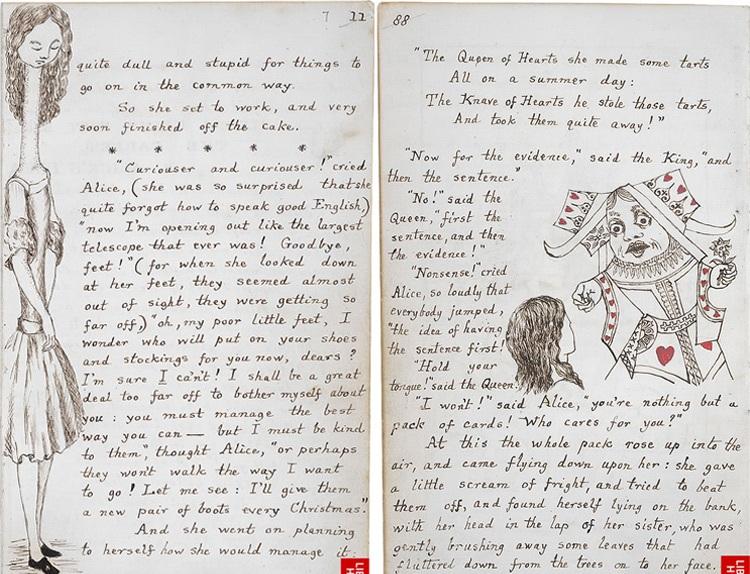 7 11
quite dull and stupid for things to
go on in the common way.
So she set to work, and very
soon finished off the cake.
* * * * *
"Curiouser and curiouser!" cried
Alice, (she was so surprised that she
quite forgot how to speak good English,)
"now I'm opening out like the largest
telescope that ever was! Goodbye,
feet!" (for when she looked down
at her feet, they seemed almost
out of sight, they were getting so
far off,) "oh, my poor little feet, I
wonder who will put on your shoes
and stockings for you now, dears?
I'm sure I can't! I shall be a great
deal too far off to bother myself about
you: you must manage the best
way you can — but I must be kind
to them", thought Alice, "or perhaps
they won't walk the way I want
to go! Let me see: I'll give them
a new pair of boots every Christmas."
And she went on planning
to herself how she would manage it:
88
"The Queen of Hearts she made some tarts
All on a summer day:
The Knave of Hearts he stole those tarts,
And took them quite away!"
"Now for the evidence," said the King, "and
then the sentence."
"No!" said the
Queen, "first the
sentence, and then
the evidence!"
"Nonsense!" cried
Alice, so loudly that
everybody jumped,
"the idea of having
the sentence first!"
"Hold your
tongue!" said the Queen.
"I won't!" said Alice, "you're nothing but a
pack of cards! Who cares for you?"
At this the whole pack rose up into the
air, and came flying down upon her: she gave
a little scream of fright, and tried to beat
them off, and found herself lying on the bank,
with her head in the lap of her sister, who was
gently brushing away some leaves that had
fluttered down from the trees on to her face.